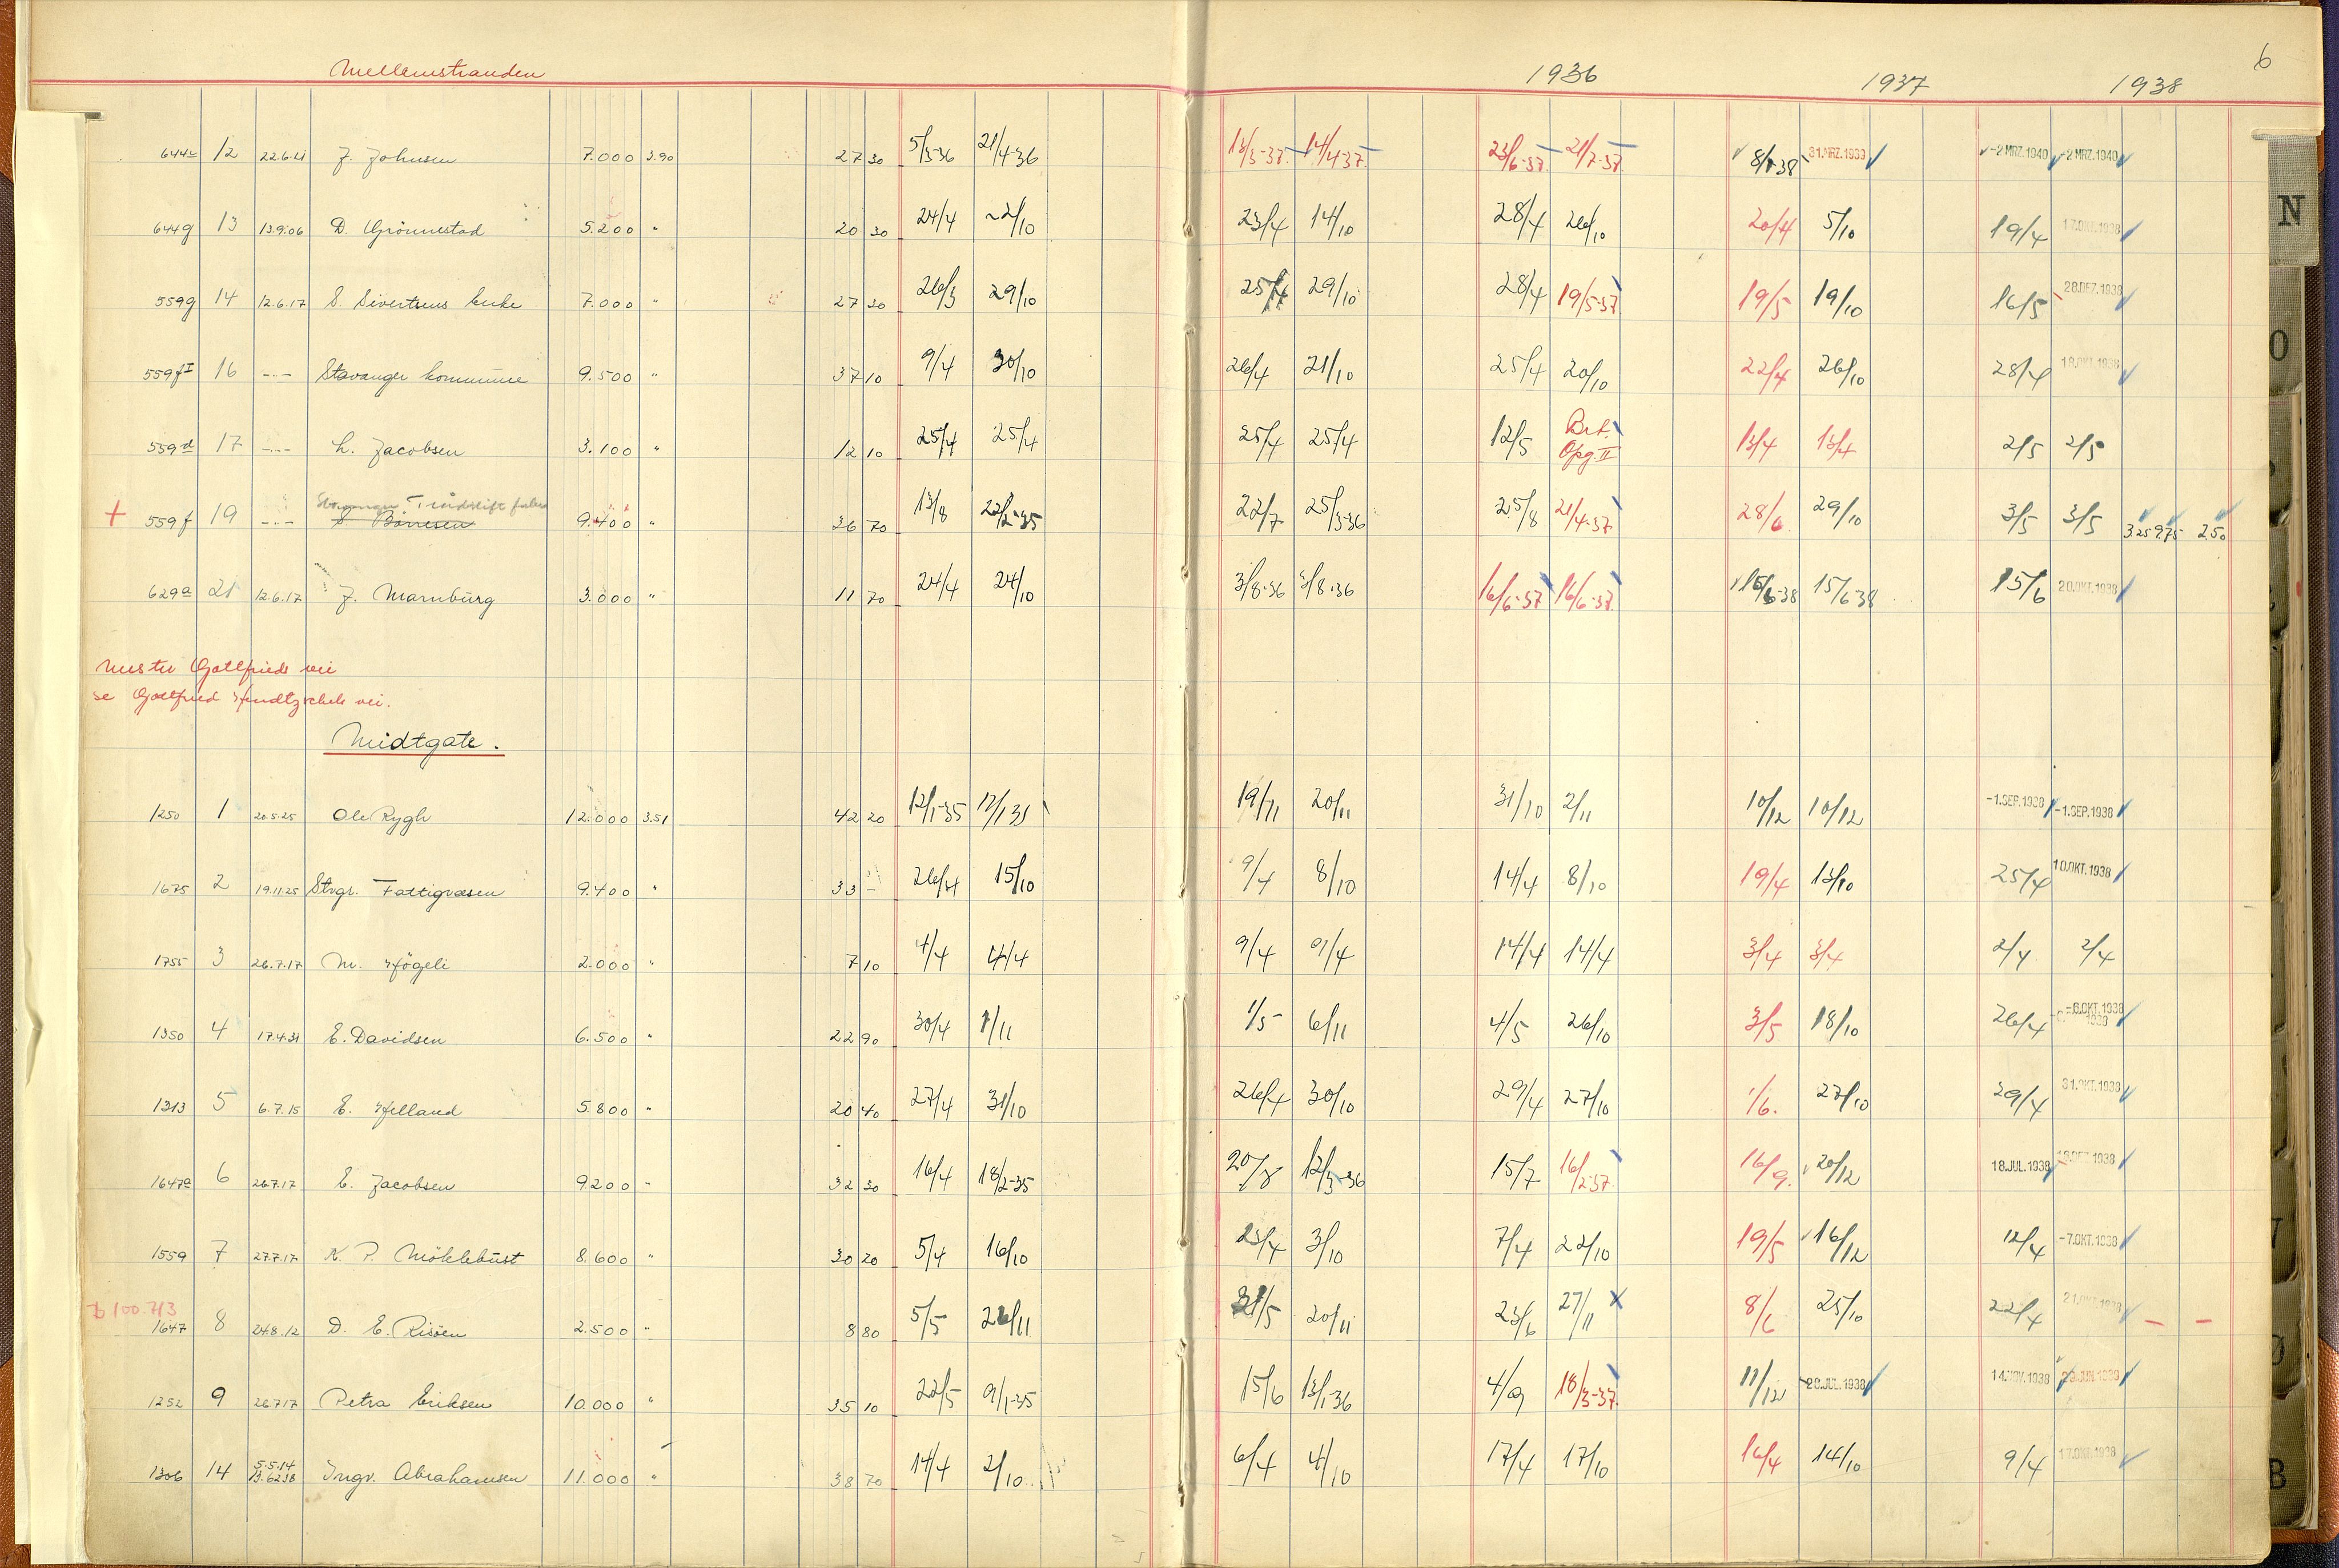 6
Mellemstranden 1936 1937 1938
644c 12 22.6.21 J. Johnsen 7.000 3.90 27 30 5/3-36 21/4-36 13/3-37 14/4-37 23/6-37 21/7-37 8/1-38 31.MRZ.1939 -2 MRZ.1940 -2 MRZ.1940
644g 13 13.9.06 D. Grönnestad 5.200 " 20 30 24/4 22/10 23/4 14/10 28/4 26/10 20/4 5/10 19/4 17.OKT.1938
559g 14 12.6.17 S. Sivertsens enke 7.000 " 27 30 26/3 29/10 25/4 29/10 28/4 19/5-37 19/5 19/10 16/5 28.DEZ.1938
559f I 16 -..- Stavanger kommune 9.500 " 37 10 9/4 30/10 26/4 21/10 25/4 20/10 22/4 26/10 28/4 18.OKT.1938
559d 17 -..- L. Jacobsen 3.100 " 12 10 25/4 25/4 25/4 25/4 12/5 Bet. Opg. II 13/4 13/4 2/5 2/5
+ 559f 19 -..- S Börresen 9.400 " 36 70 13/8 22/2-35 22/7 25/3-36 25/8 21/4-37 28/6 29/10 3/5 3/5 3.25 9.75 2.50
629a 21 12.6.17 J. Marnburg 3.000 " 11 70 24/4 24/10 3/8-36 3/8-36 16/6-37 16/6-37 15/6-38 15/6-38 15/6 20.OKT.1938
Mester Gottfrieds vei
se Gottfried vei.
Midtgate.
1250 1 20.5.25 Ole Rygh 12.000 3.51 42 20 12/1-35 12/1 35 19/11 20/11 31/10 2/11 10/12 10/12 -1.SEP.1938 -1.SEP.1938
1675 2 19.11.25 Stvgr. Fattigvæsen 9.400 " 33 - 26/4 15/10 9/4 8/10 14/4 8/10 19/4 13/10 25/4 10.OKT.1938
1755 3 26.7.17 M. Högeli 2.000 " 7 10 4/4 4/4 9/4 9/4 14/4 14/4 3/4 3/4 2/4 2/4
1350 4 17.4.31 E. Davidsen 6.500 " 22 90 30/4 1/11 1/5 6/11 4/5 26/10 3/5 18/10 26/4 -6.OKT.1938
1313 5 6.7.15 E. Helland 5.800 " 20 40 27/4 31/10 26/4 30/10 29/4 27/10 1/6. 27/10 29/4 31.OKT.1938
1647a 6 26.7.17 E. Jacobsen 9.200 " 32 30 16/4 18/2-35 20/8 12/3-36 15/7 16/2-37 16/9. 20/12 18.JUL.1938
1559 7 27.7.17 K. P. Möklebust 8.600 " 30 20 5/4 16/10 23/4 3/10 7/4 22/10 19/5 16/12 12/4 -7.OKT.1938
100.713
1647 8 24.8.12 D. E. Risöen 2.500 " 8 80 5/5 26/11 31/5 20/11 23/6 27/11 x 8/6 25/10 22/4 21.OKT.1938 - -
1252 9 26.7.17 Petra Eriksen 10.000 " 35 10 22/5 9/1-35 15/6 13/1-36 4/9 18/3-37 11/12 20.JUL.1938 14.NOV.1938 23.JUN.1939
1306 14 5.5.14 13.6.238 Ingv. Abrahamsen 11.000 " 38 70 14/4 2/10 6/4 4/10 17/4 17/10 16/4 14/10 9/4 17.OKT.1938
N
O
Ø
B